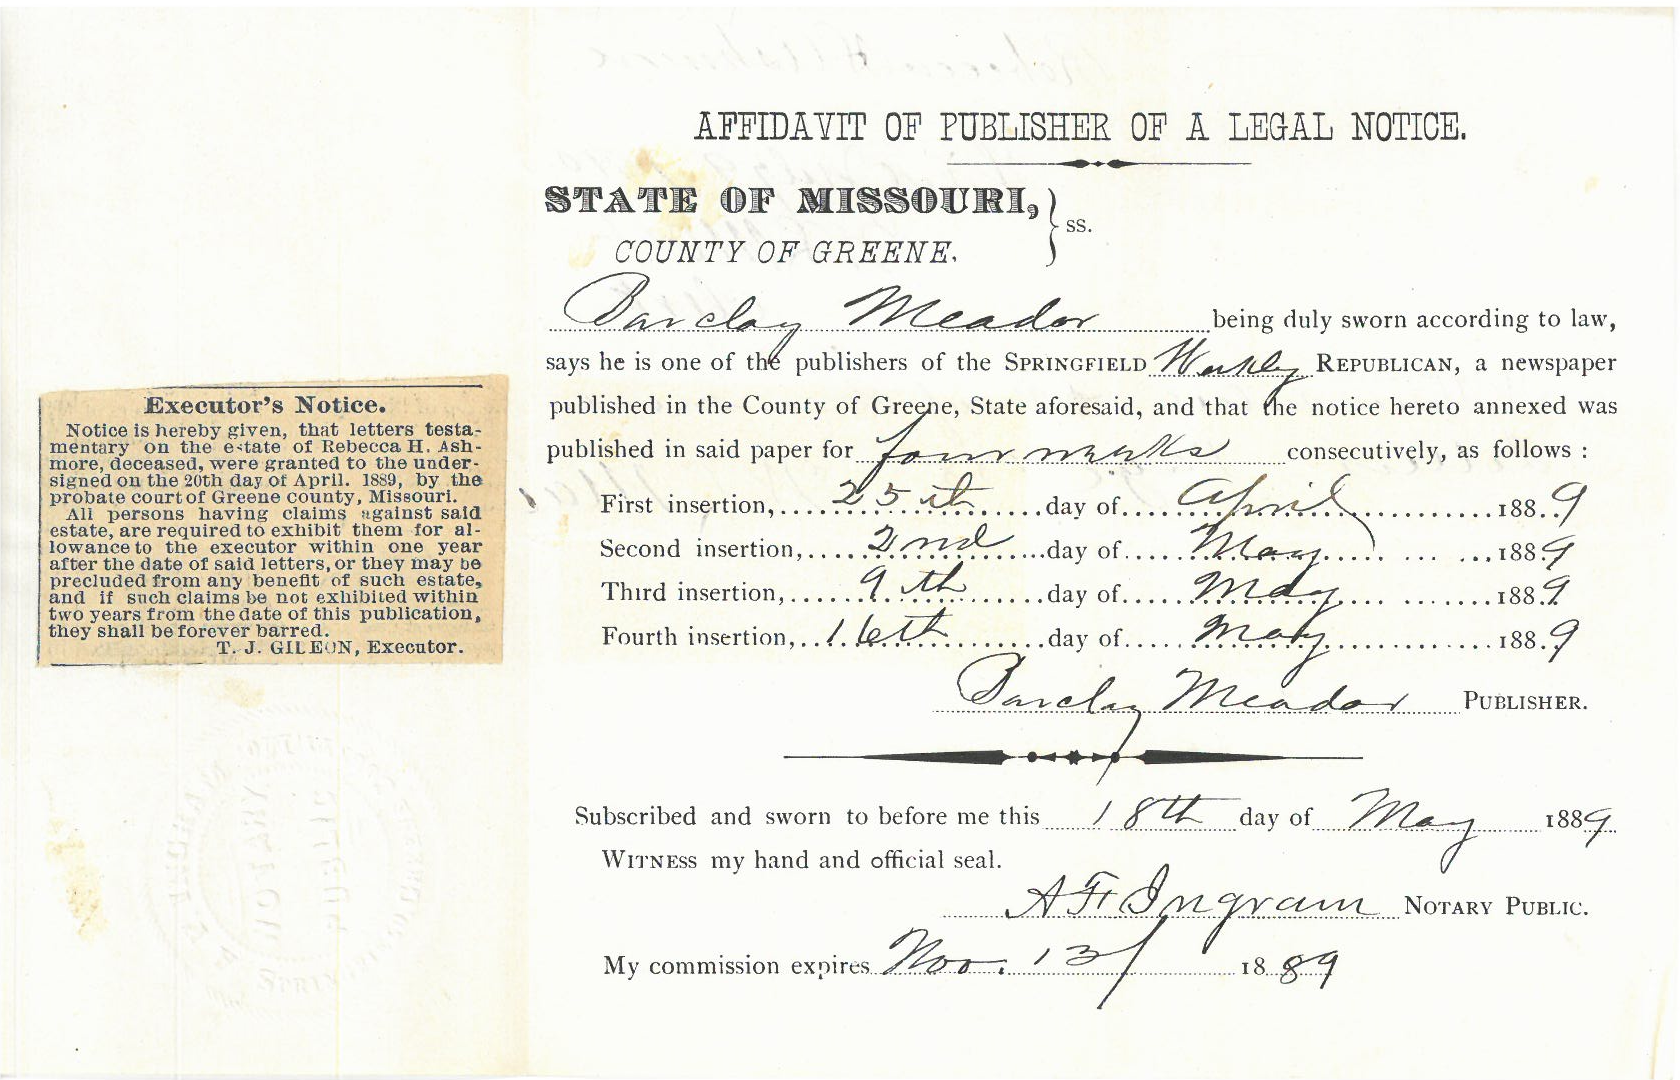 AFFIDAVIT OF PUBLISHER OF A LEGAL NOTICE.
STATE OF MISSOURI,
COUNTY OF GREENE.
ss.
Barclay Meador being duly sworn according to law,
says he is one of the publishers of the SPRINGFIELD Weekly REPUBLICAN, a newspaper
published in the County of Greene, State aforesaid, and that the notice hereto annexed was
published in said paper for four weeks consecutively, as follows :
First insertion, 25th day of April 1889
Second insertion, 2nd day of May 1889
Third insertion, 9th day of May 1889
Fourth insertion, 16th day of May 1889
Barclay Meador PUBLISHER.
Subscribed and sworn to before me this 18th day of May 1889
WITNESS my hand and official seal.
A F Ingram NOTARY PUBLIC.
My commission expires Nov. 13 1889
Executor's Notice.
Notice is hereby given, that letters testa-
mentary on the estate of Rebecca H. Ash-
more, deceased, were granted to the under-
signed on the 20th day of April. 1889, by the
probate court of Greene county, Missouri.
All persons having claims against said
estate, are required to exhibit them for al-
lowance to the executor within one year
after the date of said letters, or they may be
precluded from any benefit of such estate,
and if such claims be not exhibited within
two years from the date of this publication,
they shall be forever barred.
T. J. GILEON, Executor.